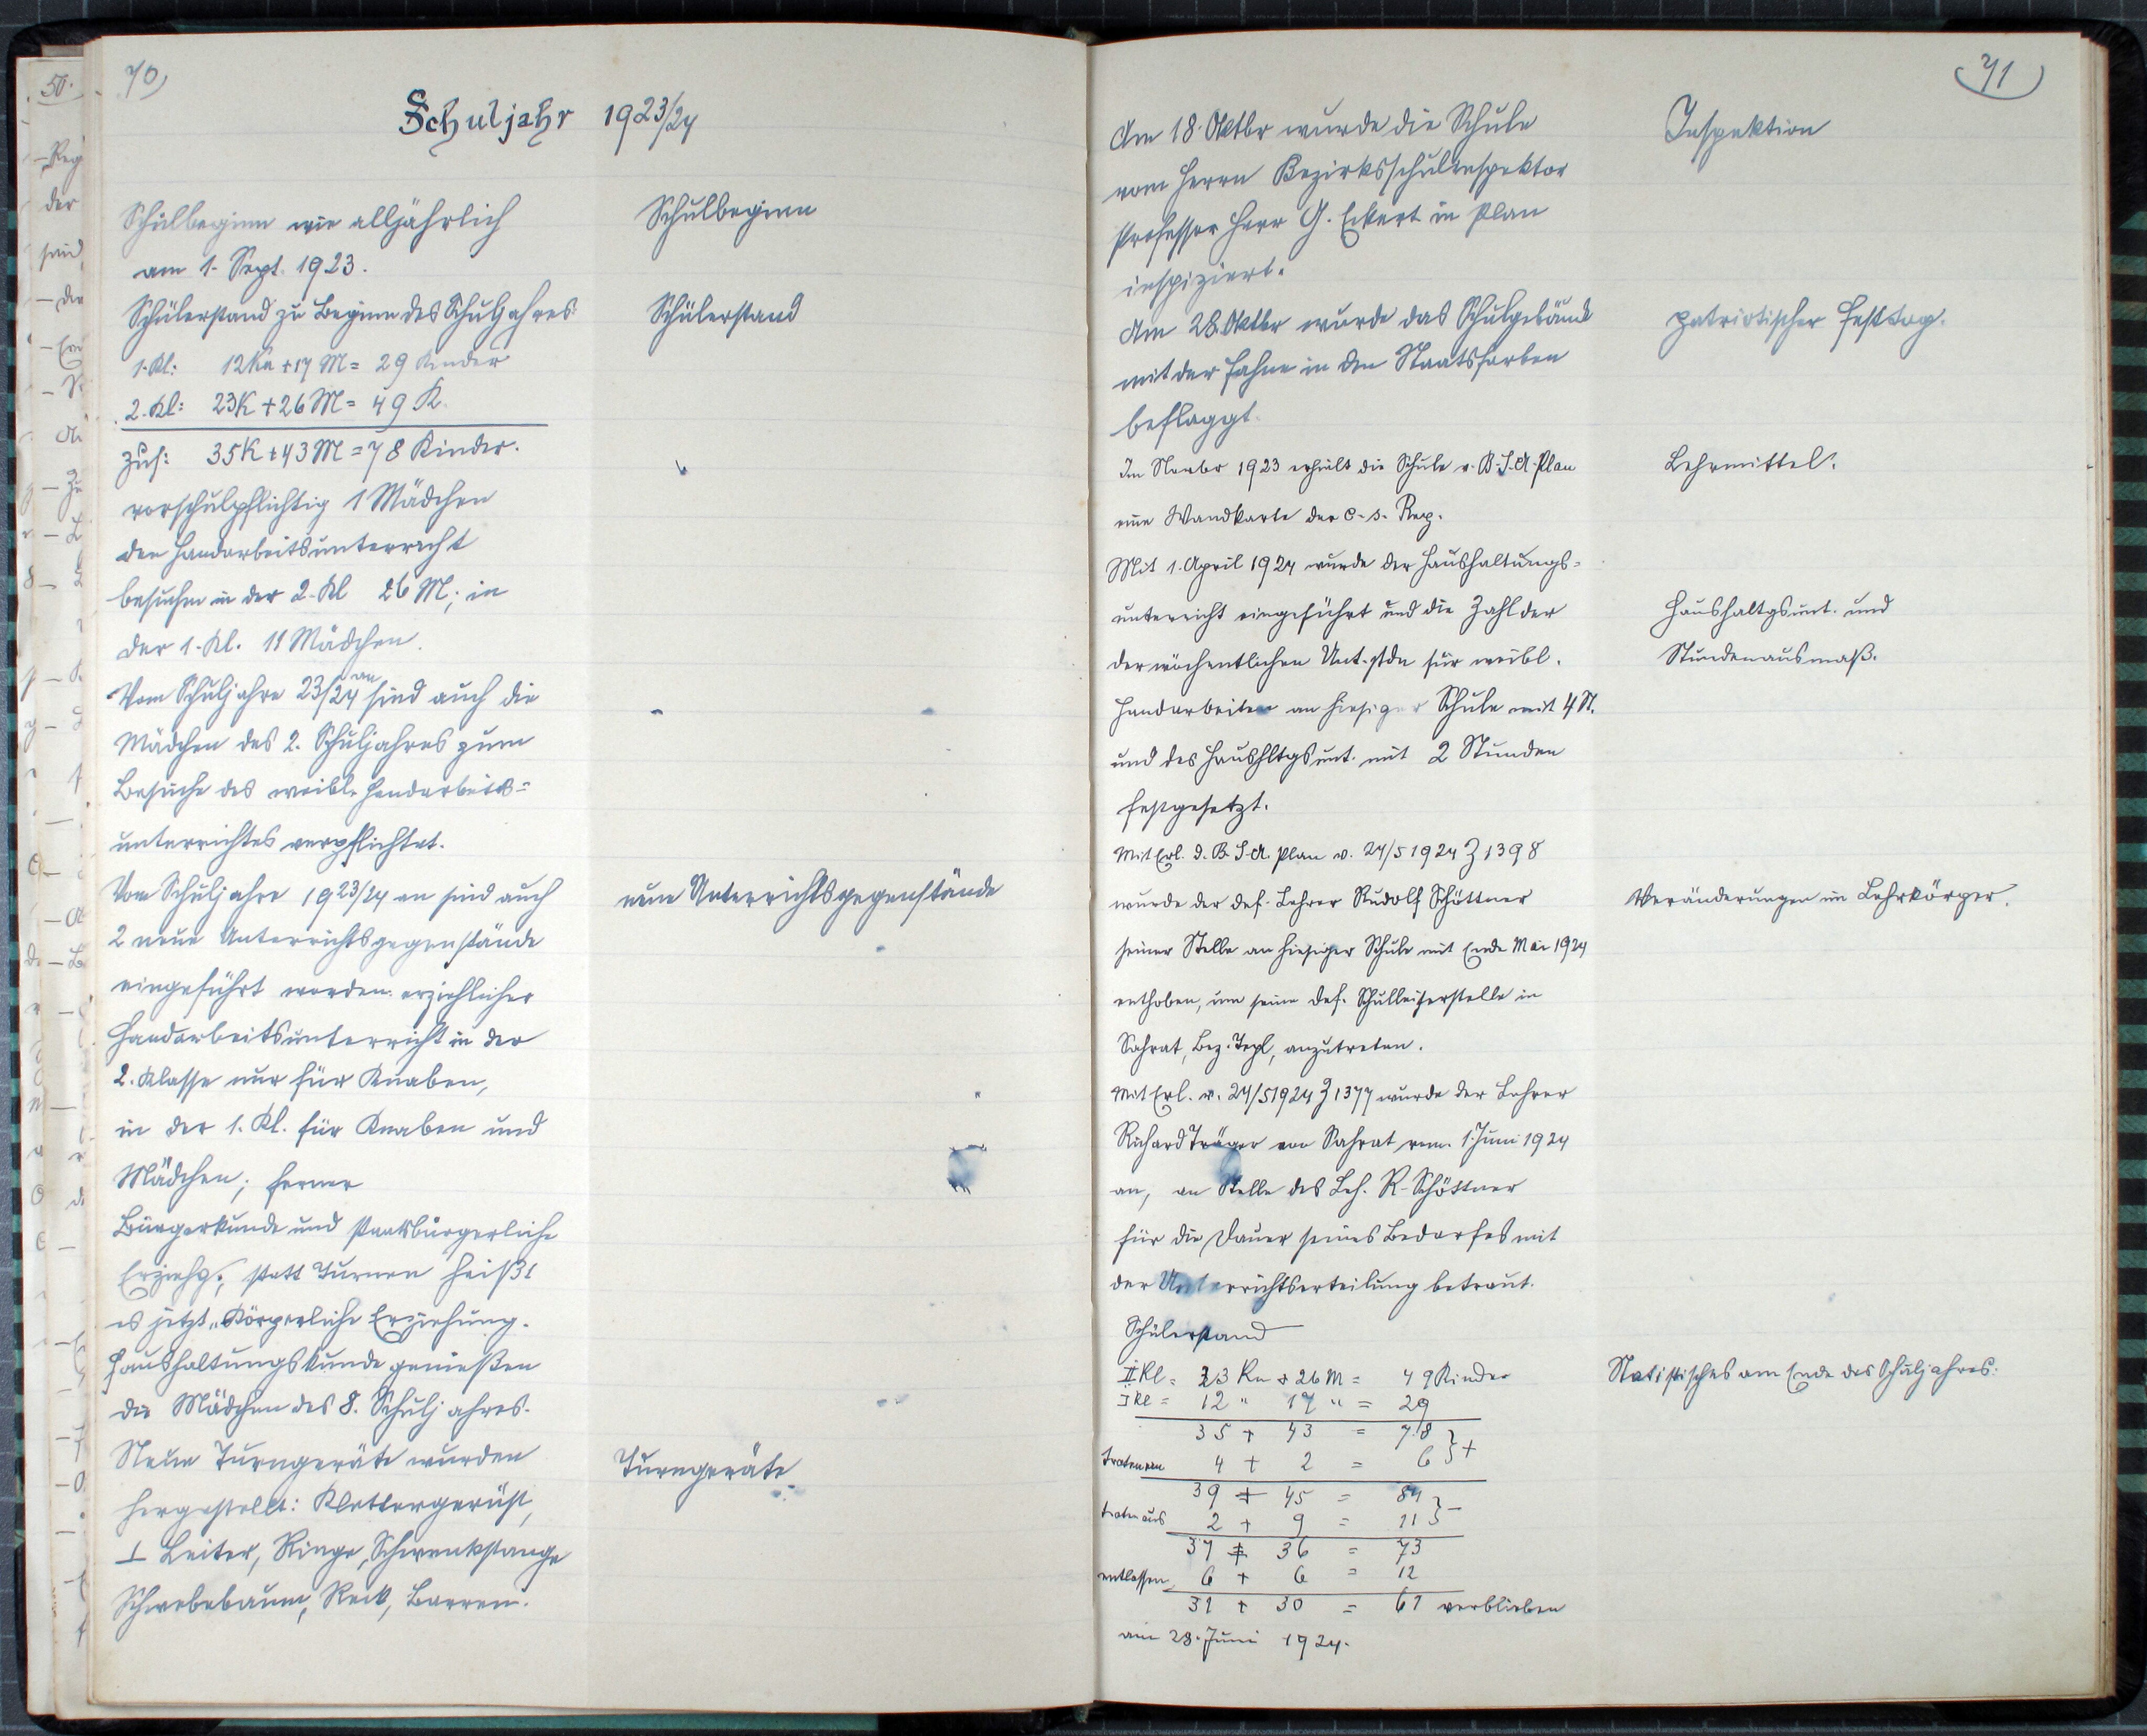 70
Schuljahr 1923/24
Schulbeginn wie alljährlich
am 1. Sept. 1923.
Schulbeginn
Schülerstand zu Beginn des Schuljahres:
Schülerstand
1. Kl: 12 Kn + 17 M = 29 Kinder
2. Kl: 23 K + 26 M = 49 K.
zus: 35 K + 43 M = 78 Kinder.
vorschulpflichtig 1 Mädchen
den Handarbeitsunterricht
besuchen in der 2. Kl 26 M; in
der 1. Kl. 11 Mädchen.
Vom Schuljahre 23/24 an sind auch die
Mädchen des 2. Schuljahres zum
Besuche des weibl. Handarbeits=
unterrichtes verpflichtet.
Vom Schuljahre 1923/24 an sind auch
neue Unterrichtsgegenstände
2 neue Unterrichtsgegenstände
eingeführt worden: erziehlicher
Handarbeitsunterricht in der
2. Klasse nur für Knaben,
in der 1. Kl. für Knaben und
Mädchen; ferner
Bürgerkunde und staatsbürgerliche
Erziehg.; statt Turnen heißt
es jetzt „Körperliche Erziehung.
Haushaltungskunde genießen
die Mädchen des 8. Schuljahres.
Neue Turngeräte wurden
Turngeräte
hergestellt: Klettergerüst,
⊥ Leiter, Ringe, Schwenkstange
Schwebebaum, Reck, Barren.
71
Am 18. Oktbr wurde die Schule
Inspektion
vom Herrn Bezirksschulinspektor
Professor Herr G. Eckert in Plan
inspiziert.
Am 28. Oktbr wurde das Schulgebäude
patriotischer Festtag.
mit der Fahne in den Staatsfarben
beflaggt.
Im Novbr 1923 erhielt die Schule v. B.S.A. Plan
Lehrmittel.
eine Wandkarte der c.-s. Rep.
Mit 1. April 1924 wurde der Haushaltungs=
unterricht eingeführt und die Zahl der
Haushaltgsunt. und
der wöchentlichen Unt.stdn für weibl.
Stundenausmaß.
Handarbeiten an hiesiger Schule mit 4 St.
und des Haushltgsunt. mit 2 Stunden
festgesetzt.
Mit Erl. d. B.S.A. Plan v. 24/5 1924 Z 1398
wurde der def. Lehrer Rudolf Schöttner
Veränderungen im Lehrkörper.
seiner Stelle an hiesiger Schule mit Ende Mai 1924
enthoben, um seine def. Schulleiterstelle in
Sahrat, Bez. Tepl, anzutreten.
Mit Erl. v. 24/5 1924 Z 1377 wurde der Lehrer
Richard Träger von Sahrat vom 1. Juni 1924
an, an Stelle des Leh. R. Schöttner
für die Dauer seines Bedarfes mit
der Unterrichtserteilung betraut.
Schülerstand
II Kl = 23 Kn + 26 M = 49 Kinder
Statistisches am Ende des Schuljahres:
I Kl = 12 " 17 " = 29
35 + 43 = 78
traten ein 4 + 2 = 6 } +
39 + 45 = 84
traten aus 2 + 9 = 11 } -
37 + 36 = 73
entlassen 6 + 6 = 12
31 + 30 = 61 verblieben
am 28. Juni 1924.